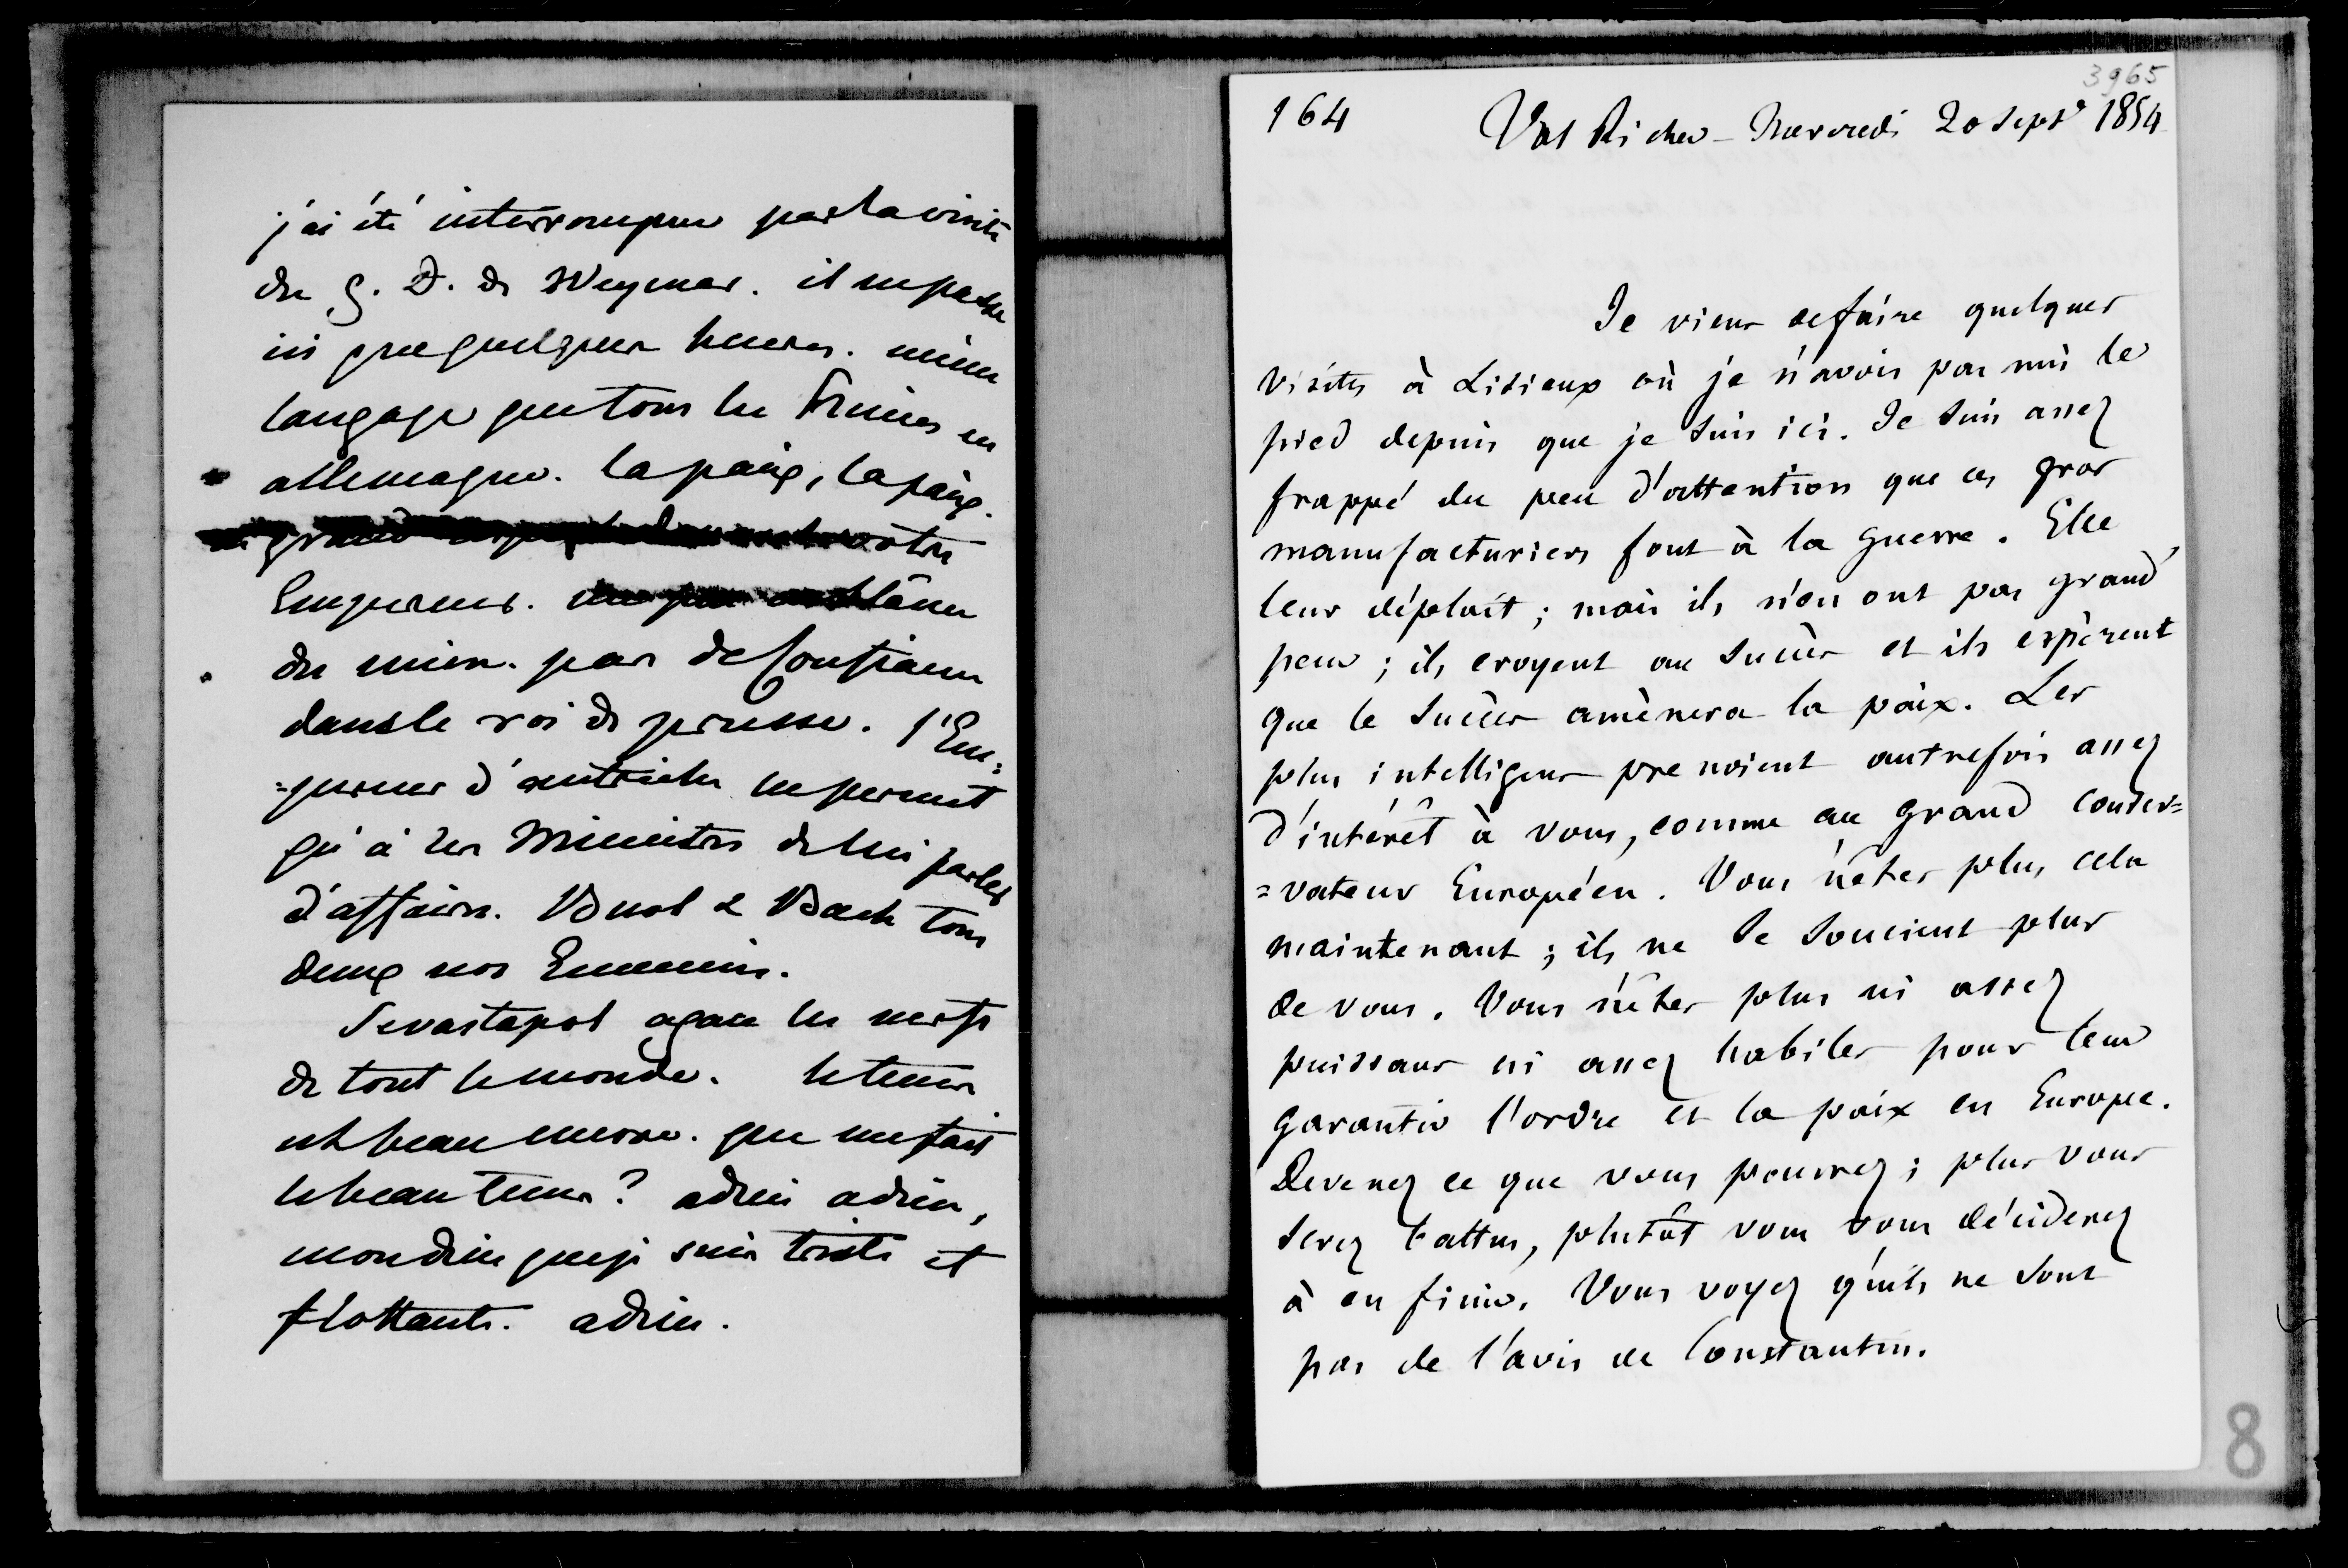 j'ai été interrompue par la visite
du G. D. de Weymar. il ne passe
ici que quelques heures. même
langage que tous les Princes en
allemagne. la paix, la paix.
grand respect votre
Empereur. blâme
du mien. pas de confiance
dans le roi de prusse. l'Em=
=pereur d'autriche ne permet
qu'à ses Ministres de lui parler
d'affaires. Buol & Bach tous
deux nos Ennemis.
Sevastopol agace les nerfs
de tout le monde. le tems
est beau encore. que me fait
le beau tems? adieu adieu,
mon dieu que je suis triste et
flottante. adieu.
3965
164 Val Richer - Mercredi 20 Sept 1854
Je viens de faire quelques
visites à Lisieux où je n'avois pas mis le
pied depuis que je suis ici. Je suis assez
frappé du peu d'attention que ces gros
manufacturiers font à la guerre. Elle
leur déplait; mais ils n'en ont pas grand'
peur; ils croyent au succès et ils espèrent
que le succès amènera la paix. Les
plus intelligens prenoient autrefois assez
d'intérêt à vous, comme au grand conser=
=vateur Européen. Vous n'êtes plus cela
maintenant; ils ne se soucient plus
de vous. Vous n'êtes plus ni assez
puissans ni assez habiles pour leur
garantir l'ordre et la paix en Europe.
Devenez ce que vous pourrez; plus vous
serez battus, plutôt vous vous déciderez
à en finir. Vous voyez qu'ils ne sont
pas de l'avis de Constantin.
8